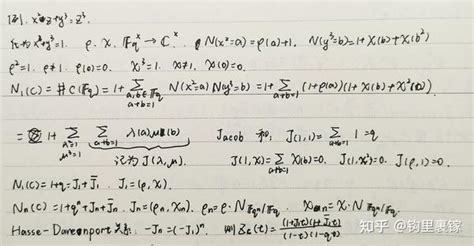 例. x²z+y³=z³.
化为 x²+y³=1. ρ, χ: 𝔽q^× → ℂ^×. ρ N(x²=a)=ρ(a)+1. N(y³=b)=1+χ(b)+χ(b²)
ρ²=1. ρ≠1. ρ(0)=0. χ³=1. χ≠1. χ(0)=0.
N₁(C)=#C(𝔽q)=1+∑_{a,b∈𝔽q, a+b=1} N(x²=a)N(y³=b)=1+∑_{a+b=1}(1+ρ(a))(1+χ(b)+χ²(b)).
=1+∑_{λ²=1, μ³=1} ∑_{a+b=1} λ(a)μ(b) Jacob 和, J(1,1)=∑_{a+b=1} 1=q
记为 J(λ,μ). J(1,χ)=∑χ(b)=0. J(1,χ²)=0. J(ρ,1)=0.
N₁(C)=1+q+J₁+J̄₁. J₁=(ρ,χ).
Nₙ(C)=1+qⁿ+Jₙ+J̄ₙ. Jₙ=(ρₙ,χₙ). ρₙ=ρ·N_{𝔽qⁿ/𝔽q}. χₙ=χ·N_{𝔽qⁿ/𝔽q}
Hasse-Davenport关系: -Jₙ=(-J₁)ⁿ. 则 Z_C(t)=(1+J₁t)(1+J̄₁t)/(1-t)(1-qt)
知乎 @钧里裹镓